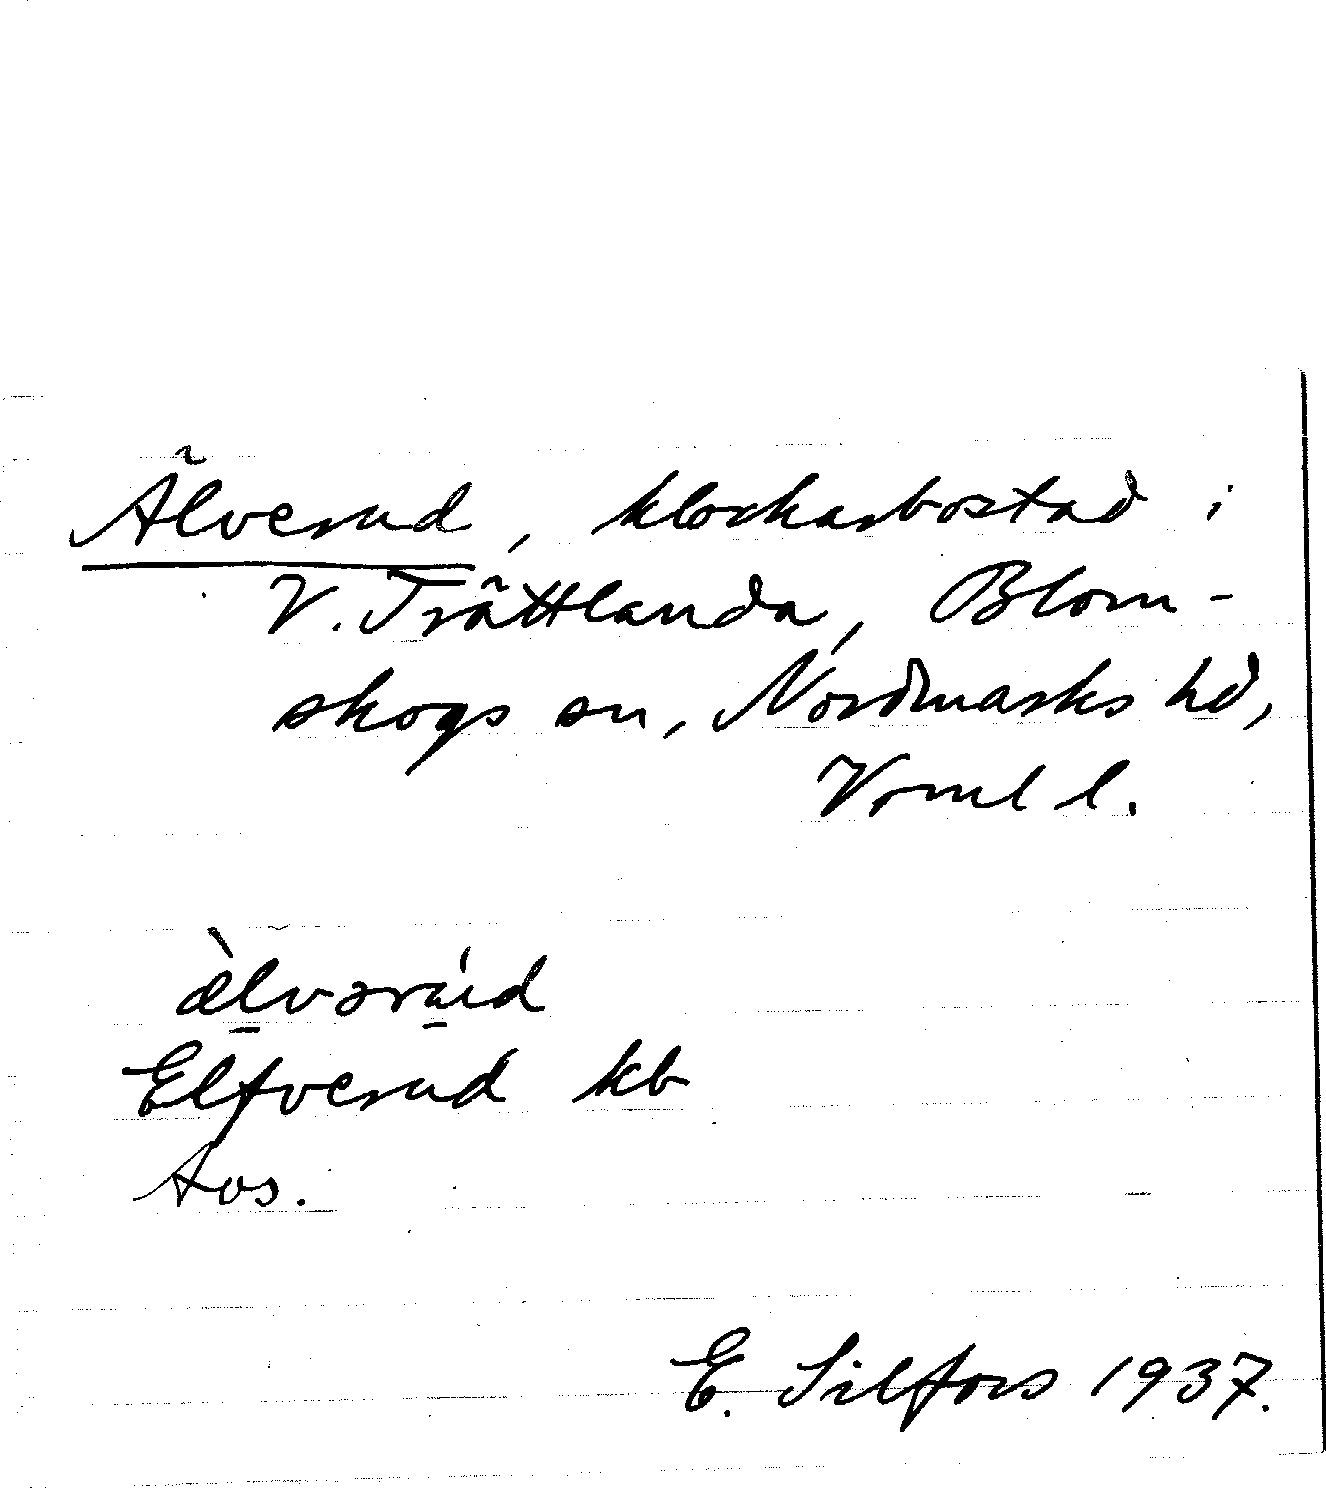 Älverud, klockarbostad i
V. Trättlanda, Blom-
skogs sn, Nordmarks hd,
Vrml l.
æ̀lvərúd
Elfverud kb
Avs.
E. Silfors 1937.